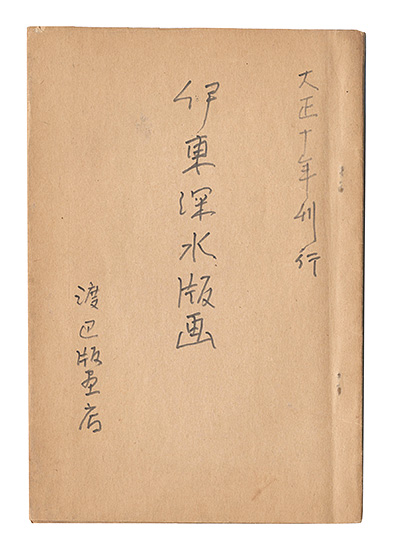 大正十年刊行
伊東深水版画
渡辺版画店